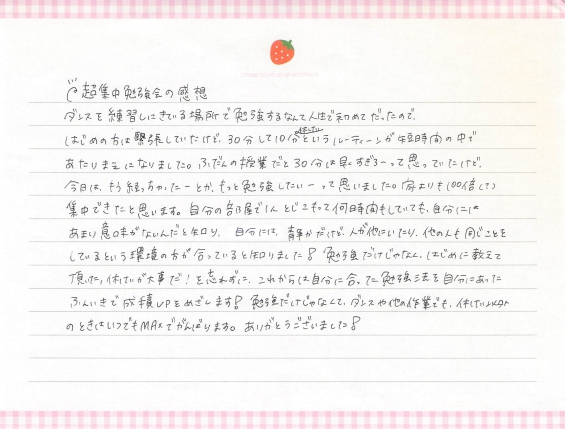 超集中勉強会の感想
ダンスを練習しにきている場所で勉強するなんて人生で初めてだったので、
はじめの方は緊張していたけど、30分して10分休けいというルーティーンが短時間の中で
あたりまえになりました。ふだんの授業だと30分は早くすぎろーって思っていたけど、
今日は、もう終っちゃったーとか、もっと勉強したいーって思いました。家よりも100倍くらい
集中できたと思います。自分の部屋で1人とじこもって何時間もしていても、自分には
あまり意味がないんだと知り、自分には、静かだけど、人が他にいたり、他の人も同じことを
しているという環境の方が合っていると知りました!勉強だけじゃなく、はじめに教えて
頂いた、休けいが大事だ!を忘れずに、これからは自分に合った勉強法を自分にあった
ふんいきで成積UPをめざします!勉強だけじゃなくて、ダンスや他の作業でも、休けい以外
のときはいつでもMAXでがんばります。ありがとうございました!